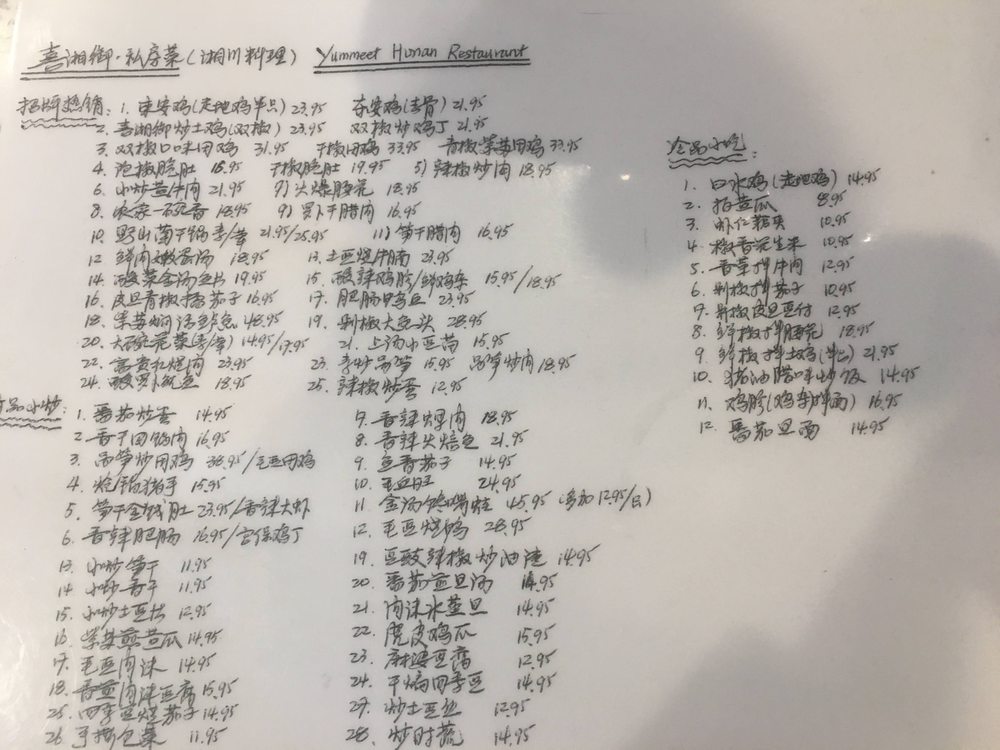 喜湘御·私房菜(湘川料理) Yummeet Hunan Restaurant
招牌热销: 1. 东安鸡(走地鸡半只) 23.95 东安鸡(去骨) 21.95
2. 喜湘御炒土鸡(双椒) 23.95 双椒炒鸡丁 21.95
3. 双椒口味田鸡 31.95 干椒田鸡 33.95 青椒紫苏田鸡 33.95
4. 泡椒脆肚 18.95 干椒脆肚 19.95 5) 辣椒炒肉 18.95
6. 小炒黄牛肉 21.95 7) 火爆腰花 18.95
8. 农家一碗香 18.95 9) 萝卜干腊肉 16.95
10. 野山菌干锅素/荤 21.95/25.95 11) 笋干腊肉 16.95
12 鲜肉嫩蛋汤 18.95 13. 土豆烧牛腩 23.95
14. 酸菜金汤鱼片 19.95 15. 酸辣鸡胗/鲜鸡杂 15.95/18.95
16. 皮旦青椒擂茄子 16.95 17. 肥肠鸭血 23.95
18. 紫苏焖活鲈鱼 48.95 19. 剁椒大鱼头 28.95
20. 大碗花菜(素/荤) 14.95/17.95 21. 上汤小豆苗 15.95
22. 富贵红烧肉 23.95 23. 素炒莴笋 15.95 莴笋炒肉 18.95
24. 酸萝卜鱿鱼 18.95 25. 辣椒炒蛋 12.95
品小炒: 1. 番茄炒蛋 14.95
2. 香干回锅肉 16.95
3. 莴笋炒田鸡 38.95/毛豆田鸡
4. 炝锅猪手 15.95
5. 笋干金钱肚 23.95/香辣大虾
6. 香辣肥肠 16.95/宫保鸡丁
13. 小炒笋干 11.95
14. 小炒香干 11.95
15. 小炒土豆片 12.95
16. 紫苏煎黄瓜 14.95
17. 毛豆肉沫 14.95
18. 香煎肉沫豆腐 15.95
25. 四季豆烧茄子 14.95
26 手撕包菜 11.95
7. 香辣焊肉 18.95
8. 香辣火焙鱼 21.95
9. 鱼香茄子 14.95
10. 毛血旺 24.95
11. 金汤娃 45.95 (多加 12.95/只)
12. 毛豆烧鸭 28.95
19. 豆豉辣椒炒油渣 14.95
20. 番茄煎旦汤 14.95
21. 肉沫水蒸旦 14.95
22. 虎皮鸡爪 15.95
23. 麻婆豆腐 12.95
24. 干煸四季豆 14.95
27. 炒土豆丝 12.95
28. 炒时蔬 14.95
冷品小吃:
1. 口水鸡(走地鸡) 14.95
2. 拍黄瓜 8.95
3. 虾仁藕夹 10.95
4. 椒香花生米 10.95
5. 香菜拌牛肉 12.95
6. 剁椒拌茄子 10.95
7. 剁椒皮旦豆付 12.95
8 鲜椒拌腰花 18.95
9 鲜椒拌土鸡(半只) 21.95
10. 猪油腊味炒饭 14.95
11. 鸡胗(鸡杂拌面) 16.95
12. 番茄旦面 14.95